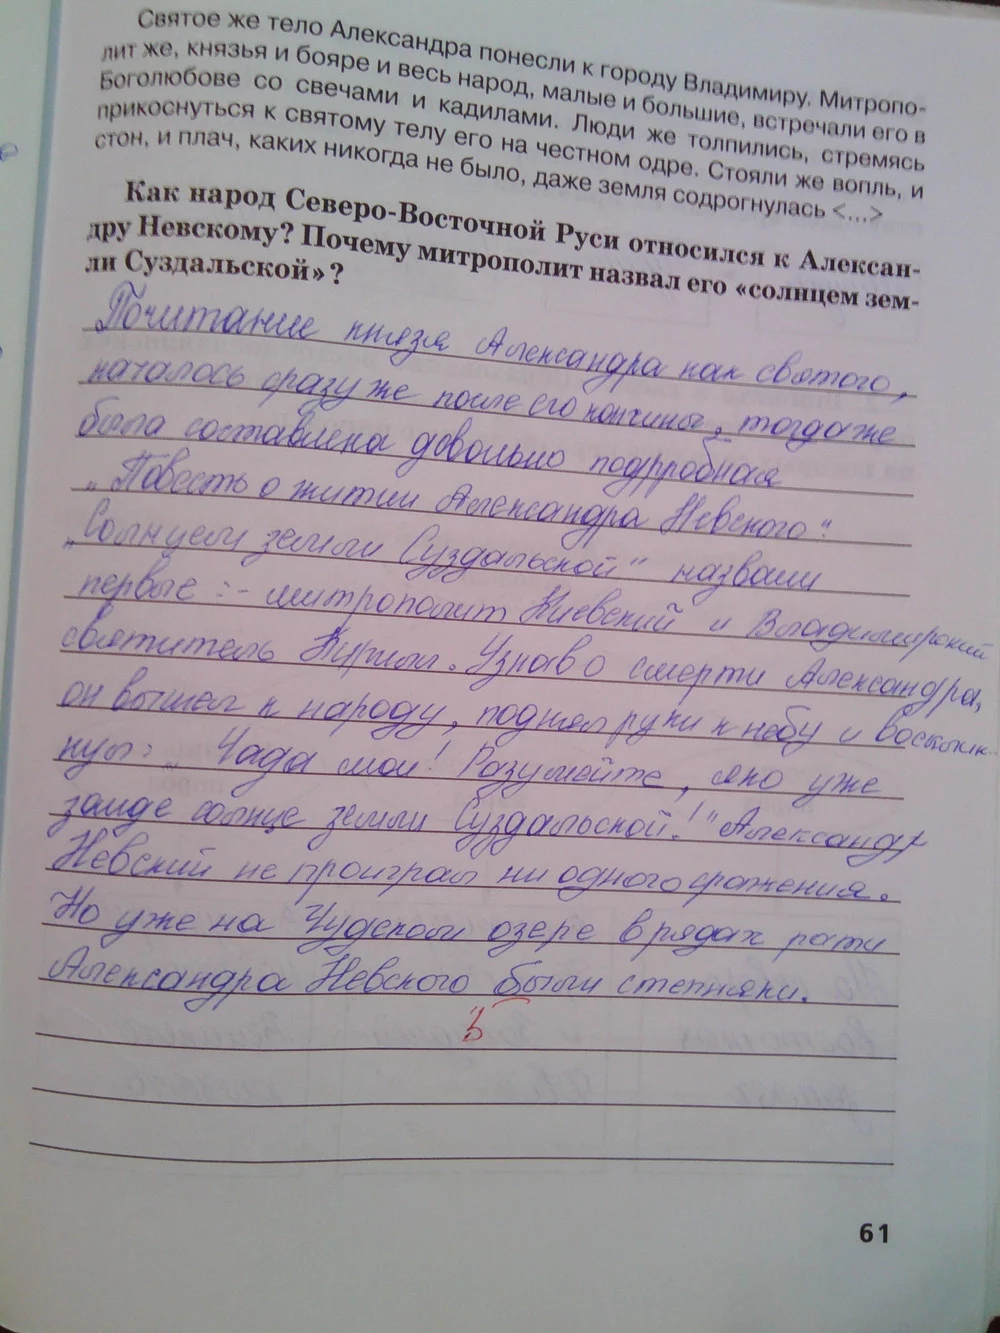 Святое же тело Александра понесли к городу Владимиру. Митропо-
лит же, князья и бояре и весь народ, малые и большие, встречали его в
Боголюбове со свечами и кадилами. Люди же толпились, стремясь
прикоснуться к святому телу его на честном одре. Стояли же вопль, и
стон, и плач, каких никогда не было, даже земля содрогнулась <...>
Как народ Северо-Восточной Руси относился к Алексан-
дру Невскому? Почему митрополит назвал его «солнцем зем-
ли Суздальской»?
Почитание князя Александра как святого,
началось сразу же после его кончины, тогда же
была составлена довольно подрробная
„Повесть о житии Александра Невского".
„Солнцем земли Суздальской" назвали
первые :- митрополит Киевский и Владимирский
святитель Кирилл. Узнав о смерти Александра,
он вышел к народу, поднял руки к небу и восклик-
нул: „Чада мои! Разумейте, яко уже
заиде солнце земли Суздальской!" Александр
Невский не проиграл ни одного сражения.
Но уже на Чудском озере в рядах рати
Александра Невского были степняки.
5
61